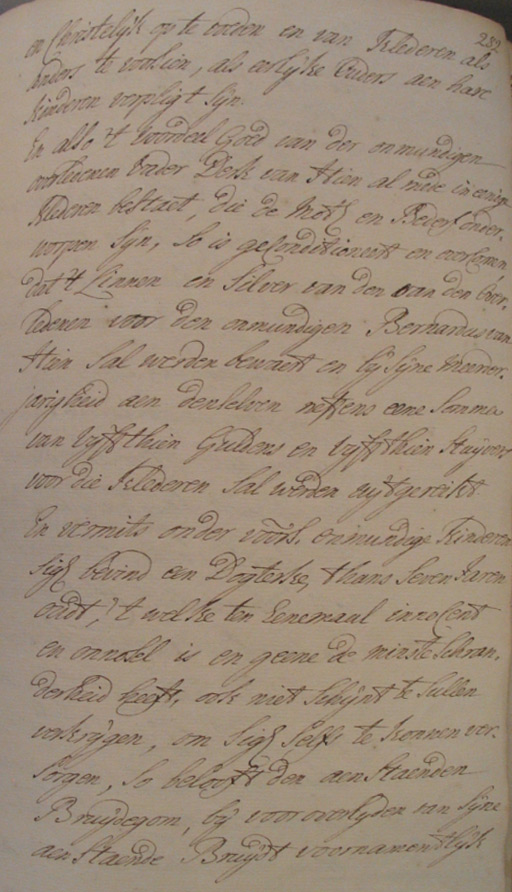 282
en Christelijk op te voeden en van Klederen als
anders te voorsien, als eerlijke Ouders aen hare
Kinderen verpligt sijn.
En also 't voordeel Goed van der onmundigen
overledenen Vader Derk van Hien al mede in eenige
Klederen bestaet, die de Mott en Bederf onder-
worpen sijn, so is geconditioneert en overcomen,
dat 't Linnen en Silver van den van den Over-
ledenen voor den onmundigen Bernardus van
Hien sal werden bewaert en bij sijne meerder-
jarigheid aen denselven neffens eene somma
van vijffthien Guldens en vijffthien Stuijvers
voor die Klederen sal werden uijtgereikt
En vermits onder voors. onmundige Kinderen
sigh bevind een Dogterke, thans seven Jaren
oudt, 't welke ten Eenemaal innocent
en onnosel is en geene de minste schran-
derheid heeft, ook niet schijnt te sullen
verkrijgen, om sigh selfs te konnen ver-
sorgen, so belooft den aenstaenden
Bruijdegom, bij vooroverlijden van sijne
aenstaende Bruijdt voornamentlijk